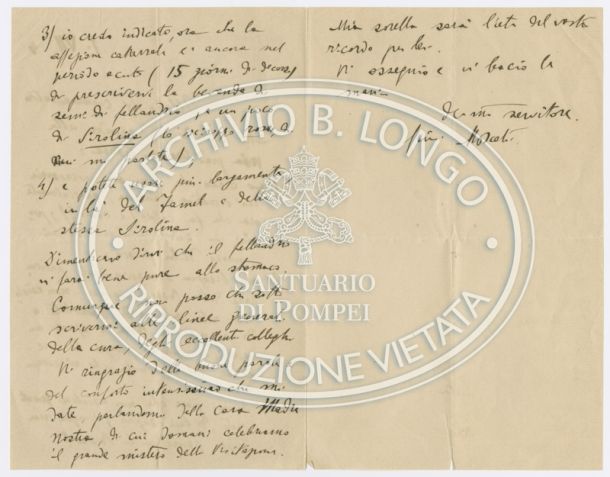 3/ io credo indicato, ora che la
affezione catarrale è ancora nel
periodo acuto (15 giorni di decorso)
di prescrivervi la bevanda di
semi di fellandrio, in un poco
di Sirolina (lo sciroppo
4/ e potete usare più largamente
del Famel e della
stessa Sirolina.
Dimenticavo dirvi che il fellandrio
vi farà bene pure allo stomaco.
Comunque non posso che sotto
scrivermi alle linee generali
della cura, degli eccellenti colleghi.
Vi ringrazio delle buone parole
del conforto intensissimo che mi
date parlandomi della cara Madre
Nostra, di cui domani celebriamo
il grande mistero della Visitazione.
Mia sorella sarà lieta del vostro
ricordo per lei.
Vi ossequio e vi bacio la
mano
servitore.
Moscati
ARCHIVIO B. LONGO
SANTUARIO
DI POMPEI
RIPRODUZIONE VIETATA